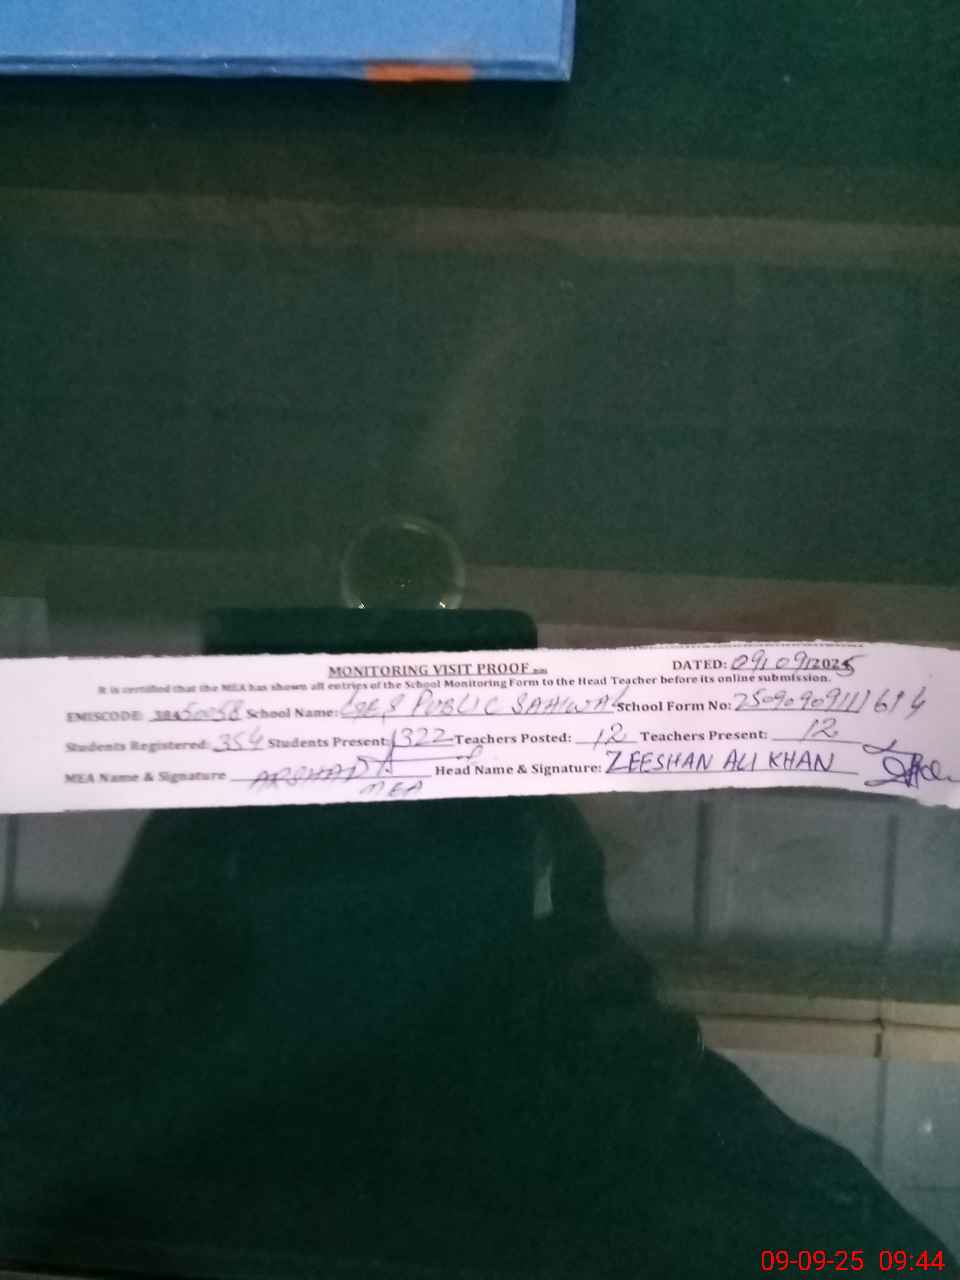 MONITORING VISIT PROOF DATED: 09/09/2025
It is certified that the MEA has shown all entries of the School Monitoring Form to the Head Teacher before its online submission.
EMISCODE: 38450058 School Name: PUBLIC SAHIWAL School Form No: 250909091111614
Students Registered: 354 Students Present: 322 Teachers Posted: 12 Teachers Present: 12
MEA Name & Signature ARSHAD Head Name & Signature: ZEESHAN ALI KHAN
MEA
09-09-25 09:44